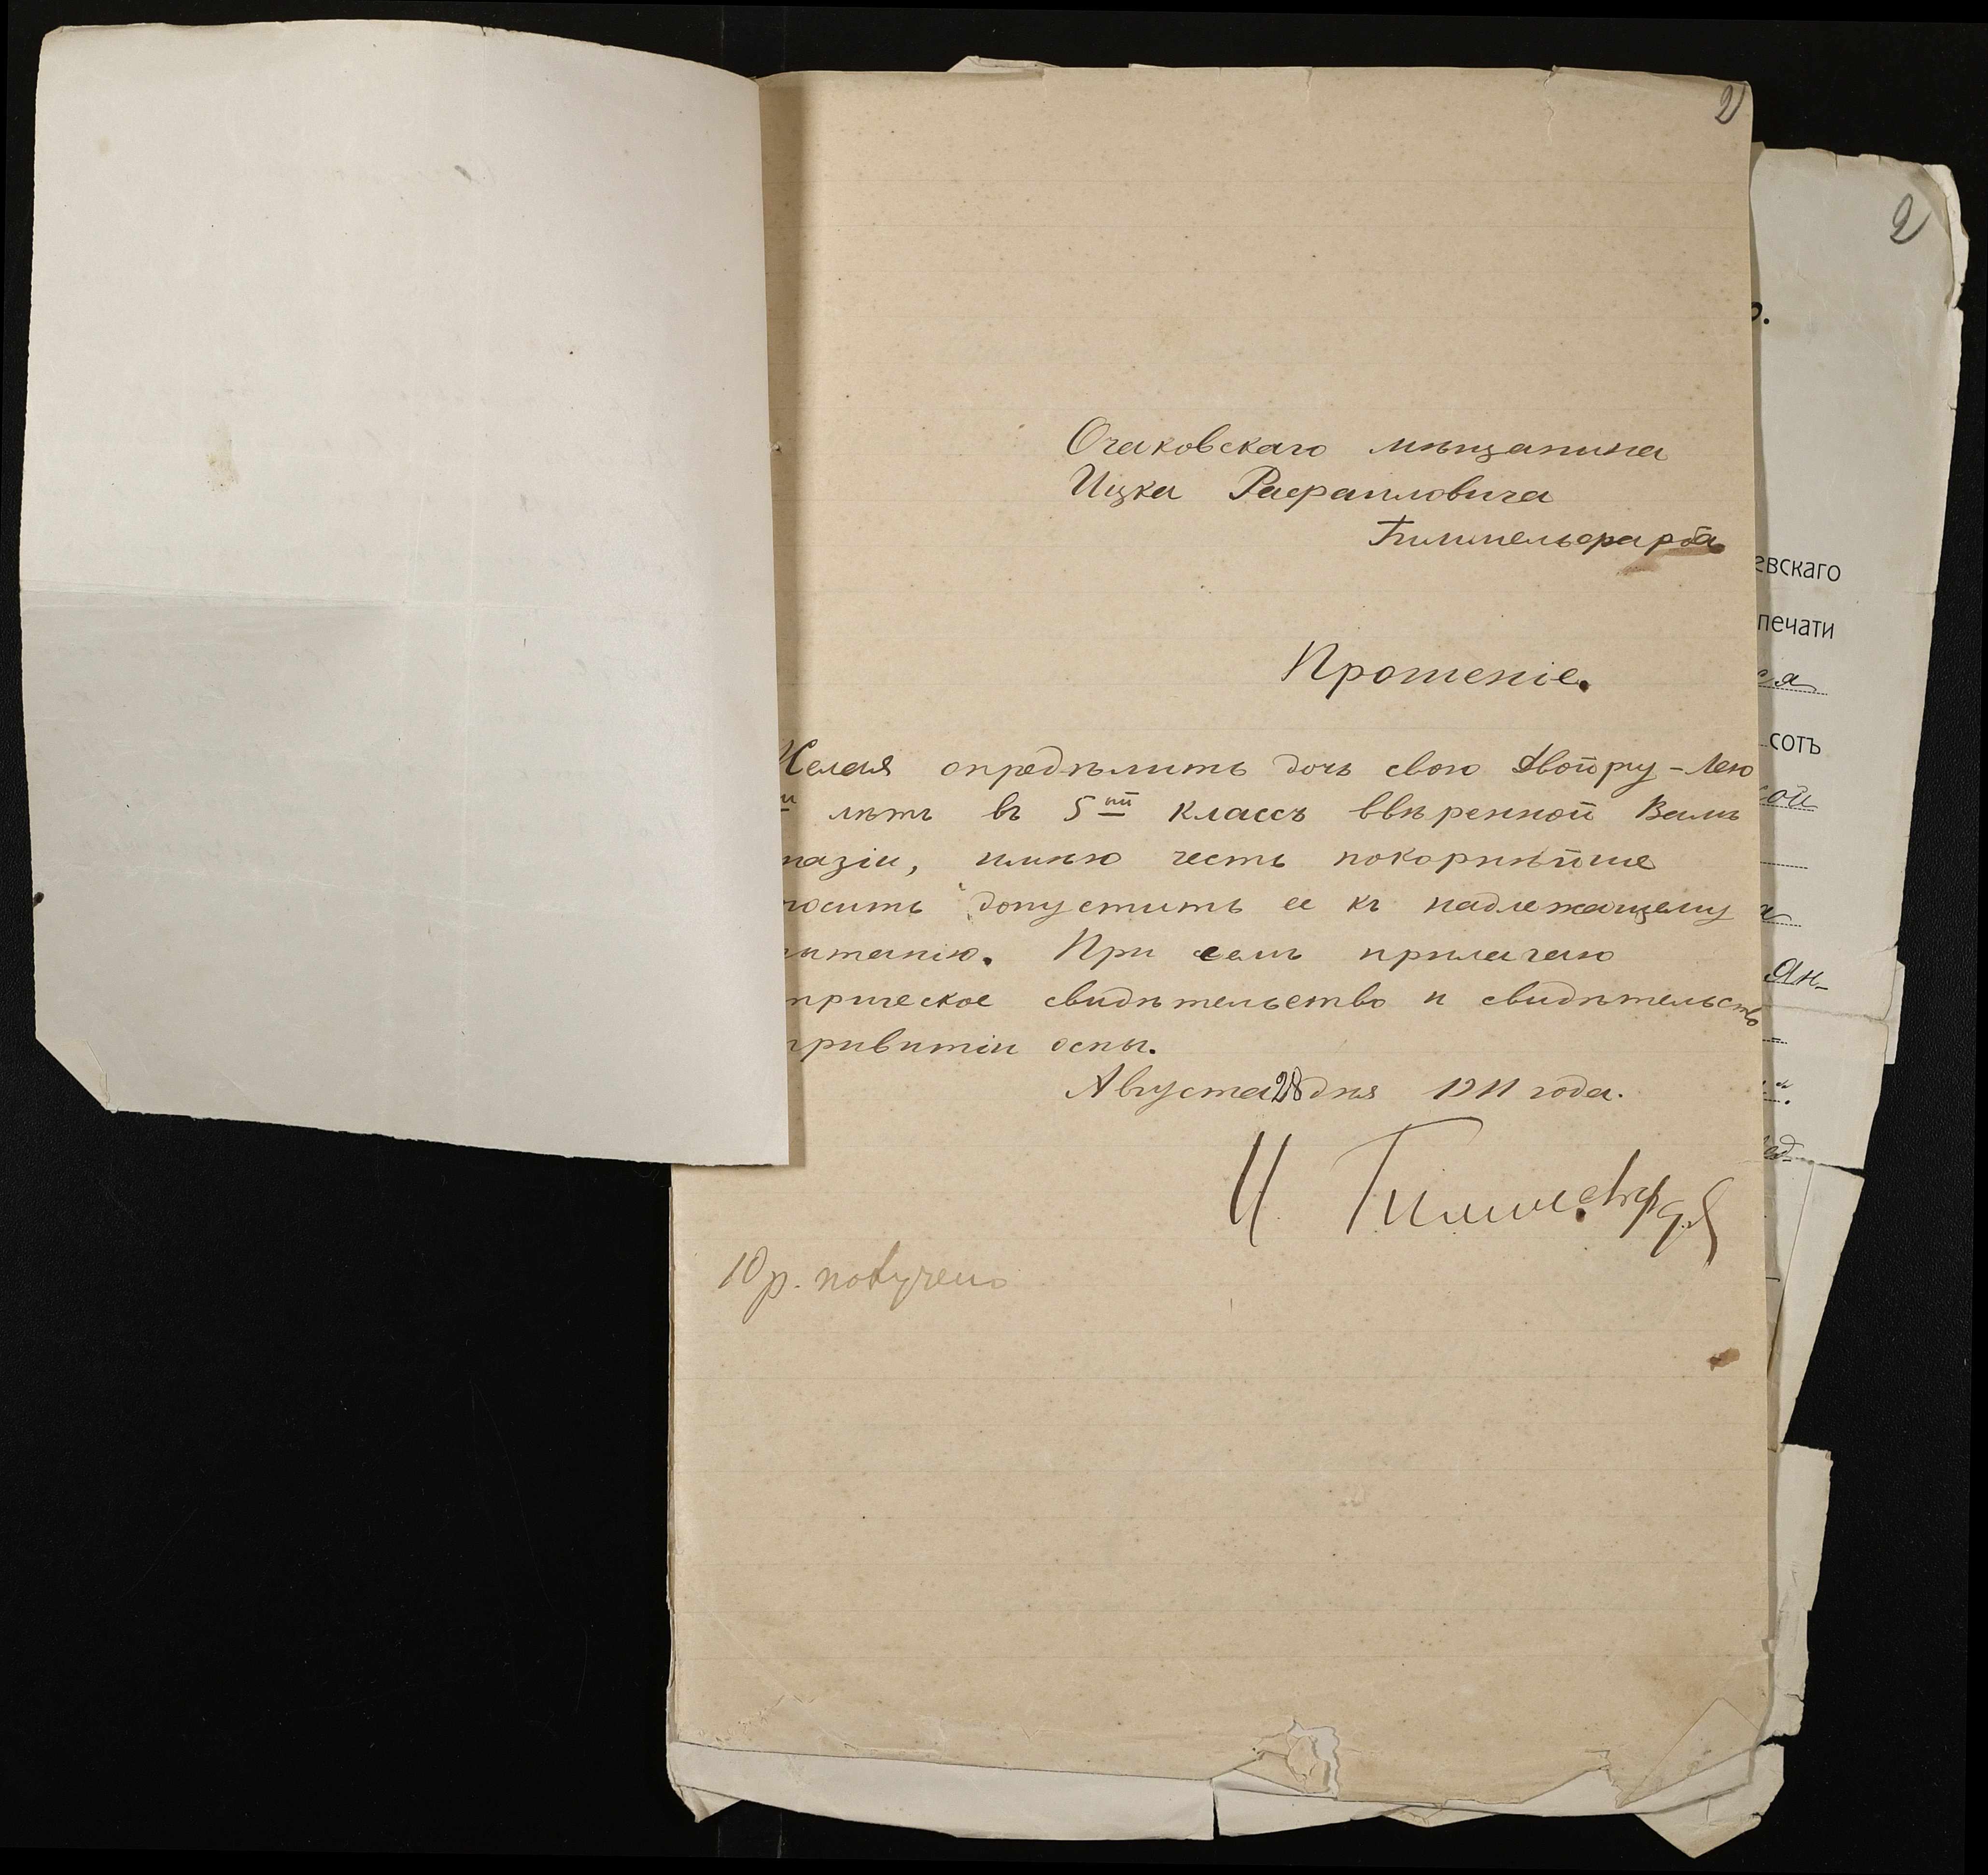 2
Очаковскаго мѣщанина
Ицка Рафаиловича
Гиммельфарба
Прошеніе.
Желая опредѣлить дочь свою Двойру-Лею
лѣтъ въ 5ый классъ ввѣренной Вамъ
назіи, имѣю честь покорнѣйше
росить допустить ее къ надлежащему
ытанію. При семъ прилагаю
трическое свидѣтельство и свидѣтельство
привитіи оспы.
Августа 28 дня 1911 года.
И Гиммельфарб
10 р. получено
2
евскаго
печати
ся
сотъ
ой
а
Ян-